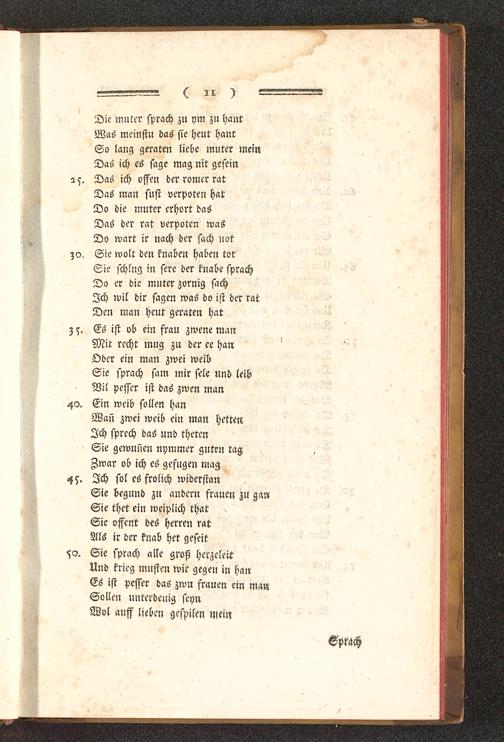 ( 11 )
Die muter sprach zu ym zu hant
Was meinstu das sie heut hant
So lang geraten liebe muter mein
Das ich es sage mag nit gesein
25. Das ich offen der romer rat
Das man sust verpoten hat
Do die muter erhort das
Das der rat verpoten was
Do wart ir nach der sach not
30. Sie wolt den knaben haben tot
Sie schlug in sere der knabe sprach
Do er die muter zornig sach
Ich wil dir sagen was do ist der rat
Den man heut geraten hat
35. Es ist ob ein frau zwene man
Mit recht mug zu der ee han
Oder ein man zwei weib
Sie sprach sam mir sele und leib
Vil pesser ist das zwen man
40. Ein weib sollen han
Wañ zwei weib ein man hetten
Ich sprech das und theten
Sie gewuñen nymmer guten tag
Zwar ob ich es gefugen mag
45. Ich sol es frolich widerstan
Sie begund zu andern frauen zu gan
Sie thet ein weiplich that
Sie offent des herren rat
Als ir der knab het geseit
50. Sie sprach alle groß herzeleit
Und krieg musten wir gegen in han
Es ist pesser das zwu frauen ein man
Sollen unterdenig seyn
Wol auff lieben gespilen mein
Sprach